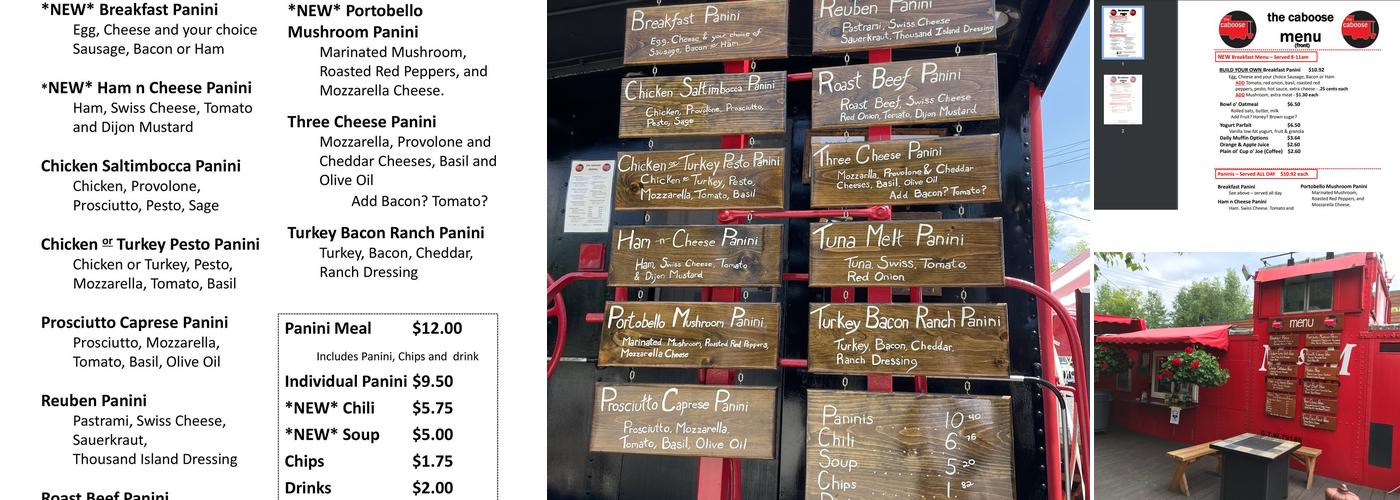 *NEW* Breakfast Panini
Egg, Cheese and your choice
Sausage, Bacon or Ham
*NEW* Ham n Cheese Panini
Ham, Swiss Cheese, Tomato
and Dijon Mustard
Chicken Saltimbocca Panini
Chicken, Provolone,
Prosciutto, Pesto, Sage
Chicken or Turkey Pesto Panini
Chicken or Turkey, Pesto,
Mozzarella, Tomato, Basil
Prosciutto Caprese Panini
Prosciutto, Mozzarella,
Tomato, Basil, Olive Oil
Reuben Panini
Pastrami, Swiss Cheese,
Sauerkraut,
Thousand Island Dressing
Roast Beef Panini
*NEW* Portobello
Mushroom Panini
Marinated Mushroom,
Roasted Red Peppers, and
Mozzarella Cheese.
Three Cheese Panini
Mozzarella, Provolone and
Cheddar Cheeses, Basil and
Olive Oil
Add Bacon? Tomato?
Turkey Bacon Ranch Panini
Turkey, Bacon, Cheddar,
Ranch Dressing
Panini Meal $12.00
Includes Panini, Chips and drink
Individual Panini $9.50
*NEW* Chili $5.75
*NEW* Soup $5.00
Chips $1.75
Drinks $2.00
Breakfast Panini
Egg, Cheese & your choice of
Sausage, Bacon or Ham
Chicken Saltimbocca Panini
Chicken, Provolone, Prosciutto,
Pesto, Sage
Chicken or Turkey Pesto Panini
Chicken or Turkey, Pesto,
Mozzarella, Tomato, Basil
Ham -n- Cheese Panini
Ham, Swiss Cheese, Tomato
& Dijon Mustard
Portobello Mushroom Panini
Marinated Mushroom, Roasted Red Peppers,
Mozzarella Cheese
Prosciutto Caprese Panini
Prosciutto, Mozzarella,
Tomato, Basil, Olive Oil
Reuben Panini
Pastrami, Swiss Cheese
Sauerkraut, Thousand Island Dressing
Roast Beef Panini
Roast Beef, Swiss Cheese
Red Onion, Tomato, Dijon Mustard
Three Cheese Panini
Mozzarella, Provolone & Cheddar
Cheeses, Basil, Olive Oil
Add Bacon? Tomato?
Tuna Melt Panini
Tuna, Swiss, Tomato,
Red Onion
Turkey Bacon Ranch Panini
Turkey, Bacon, Cheddar,
Ranch Dressing
Paninis 10.40
Chili 6.76
Soup 5.20
Chips 1.82
caboose
the caboose
menu
(front)
caboose
NEW Breakfast Menu – Served 8-11am
BUILD YOUR OWN Breakfast Panini $10.92
Egg, Cheese and your choice Sausage, Bacon or Ham
ADD Tomato, red onion, basil, roasted red
peppers, pesto, hot sauce, extra cheese - .25 cents each
ADD Mushroom, extra meat - $1.30 each
Bowl o' Oatmeal $6.50
Rolled oats, butter, milk
Add Fruit? Honey? Brown sugar?
Yogurt Parfait $6.50
Vanilla low-fat yogurt, fruit & granola
Daily Muffin Options $3.64
Orange & Apple Juice $2.60
Plain ol' Cup o' Joe (Coffee) $2.60
Paninis – Served ALL DAY $10.92 each
Breakfast Panini
See above – served all day
Ham n Cheese Panini
Ham, Swiss Cheese, Tomato and
Portobello Mushroom Panini
Marinated Mushroom,
Roasted Red Peppers, and
Mozzarella Cheese.
menu
M